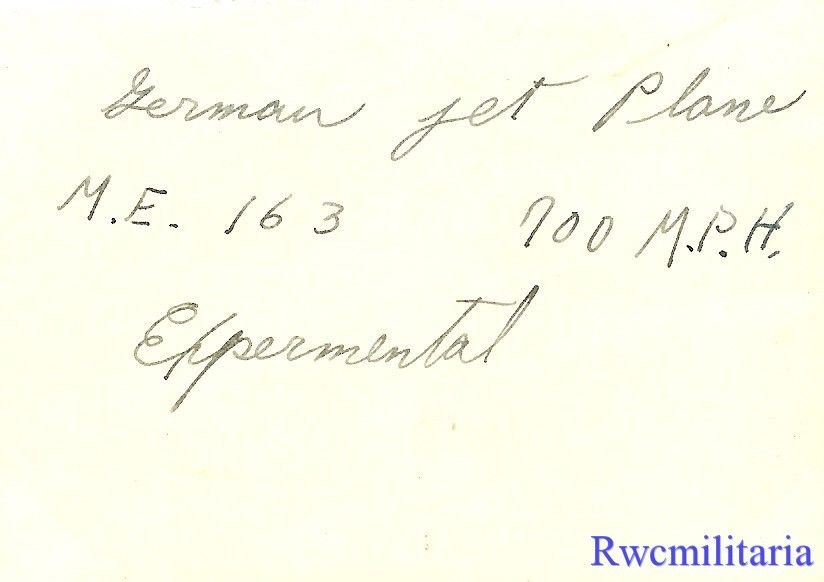 German jet Plane
M.E. 163 700 M.P.H.
Expermental
Rwcmilitaria